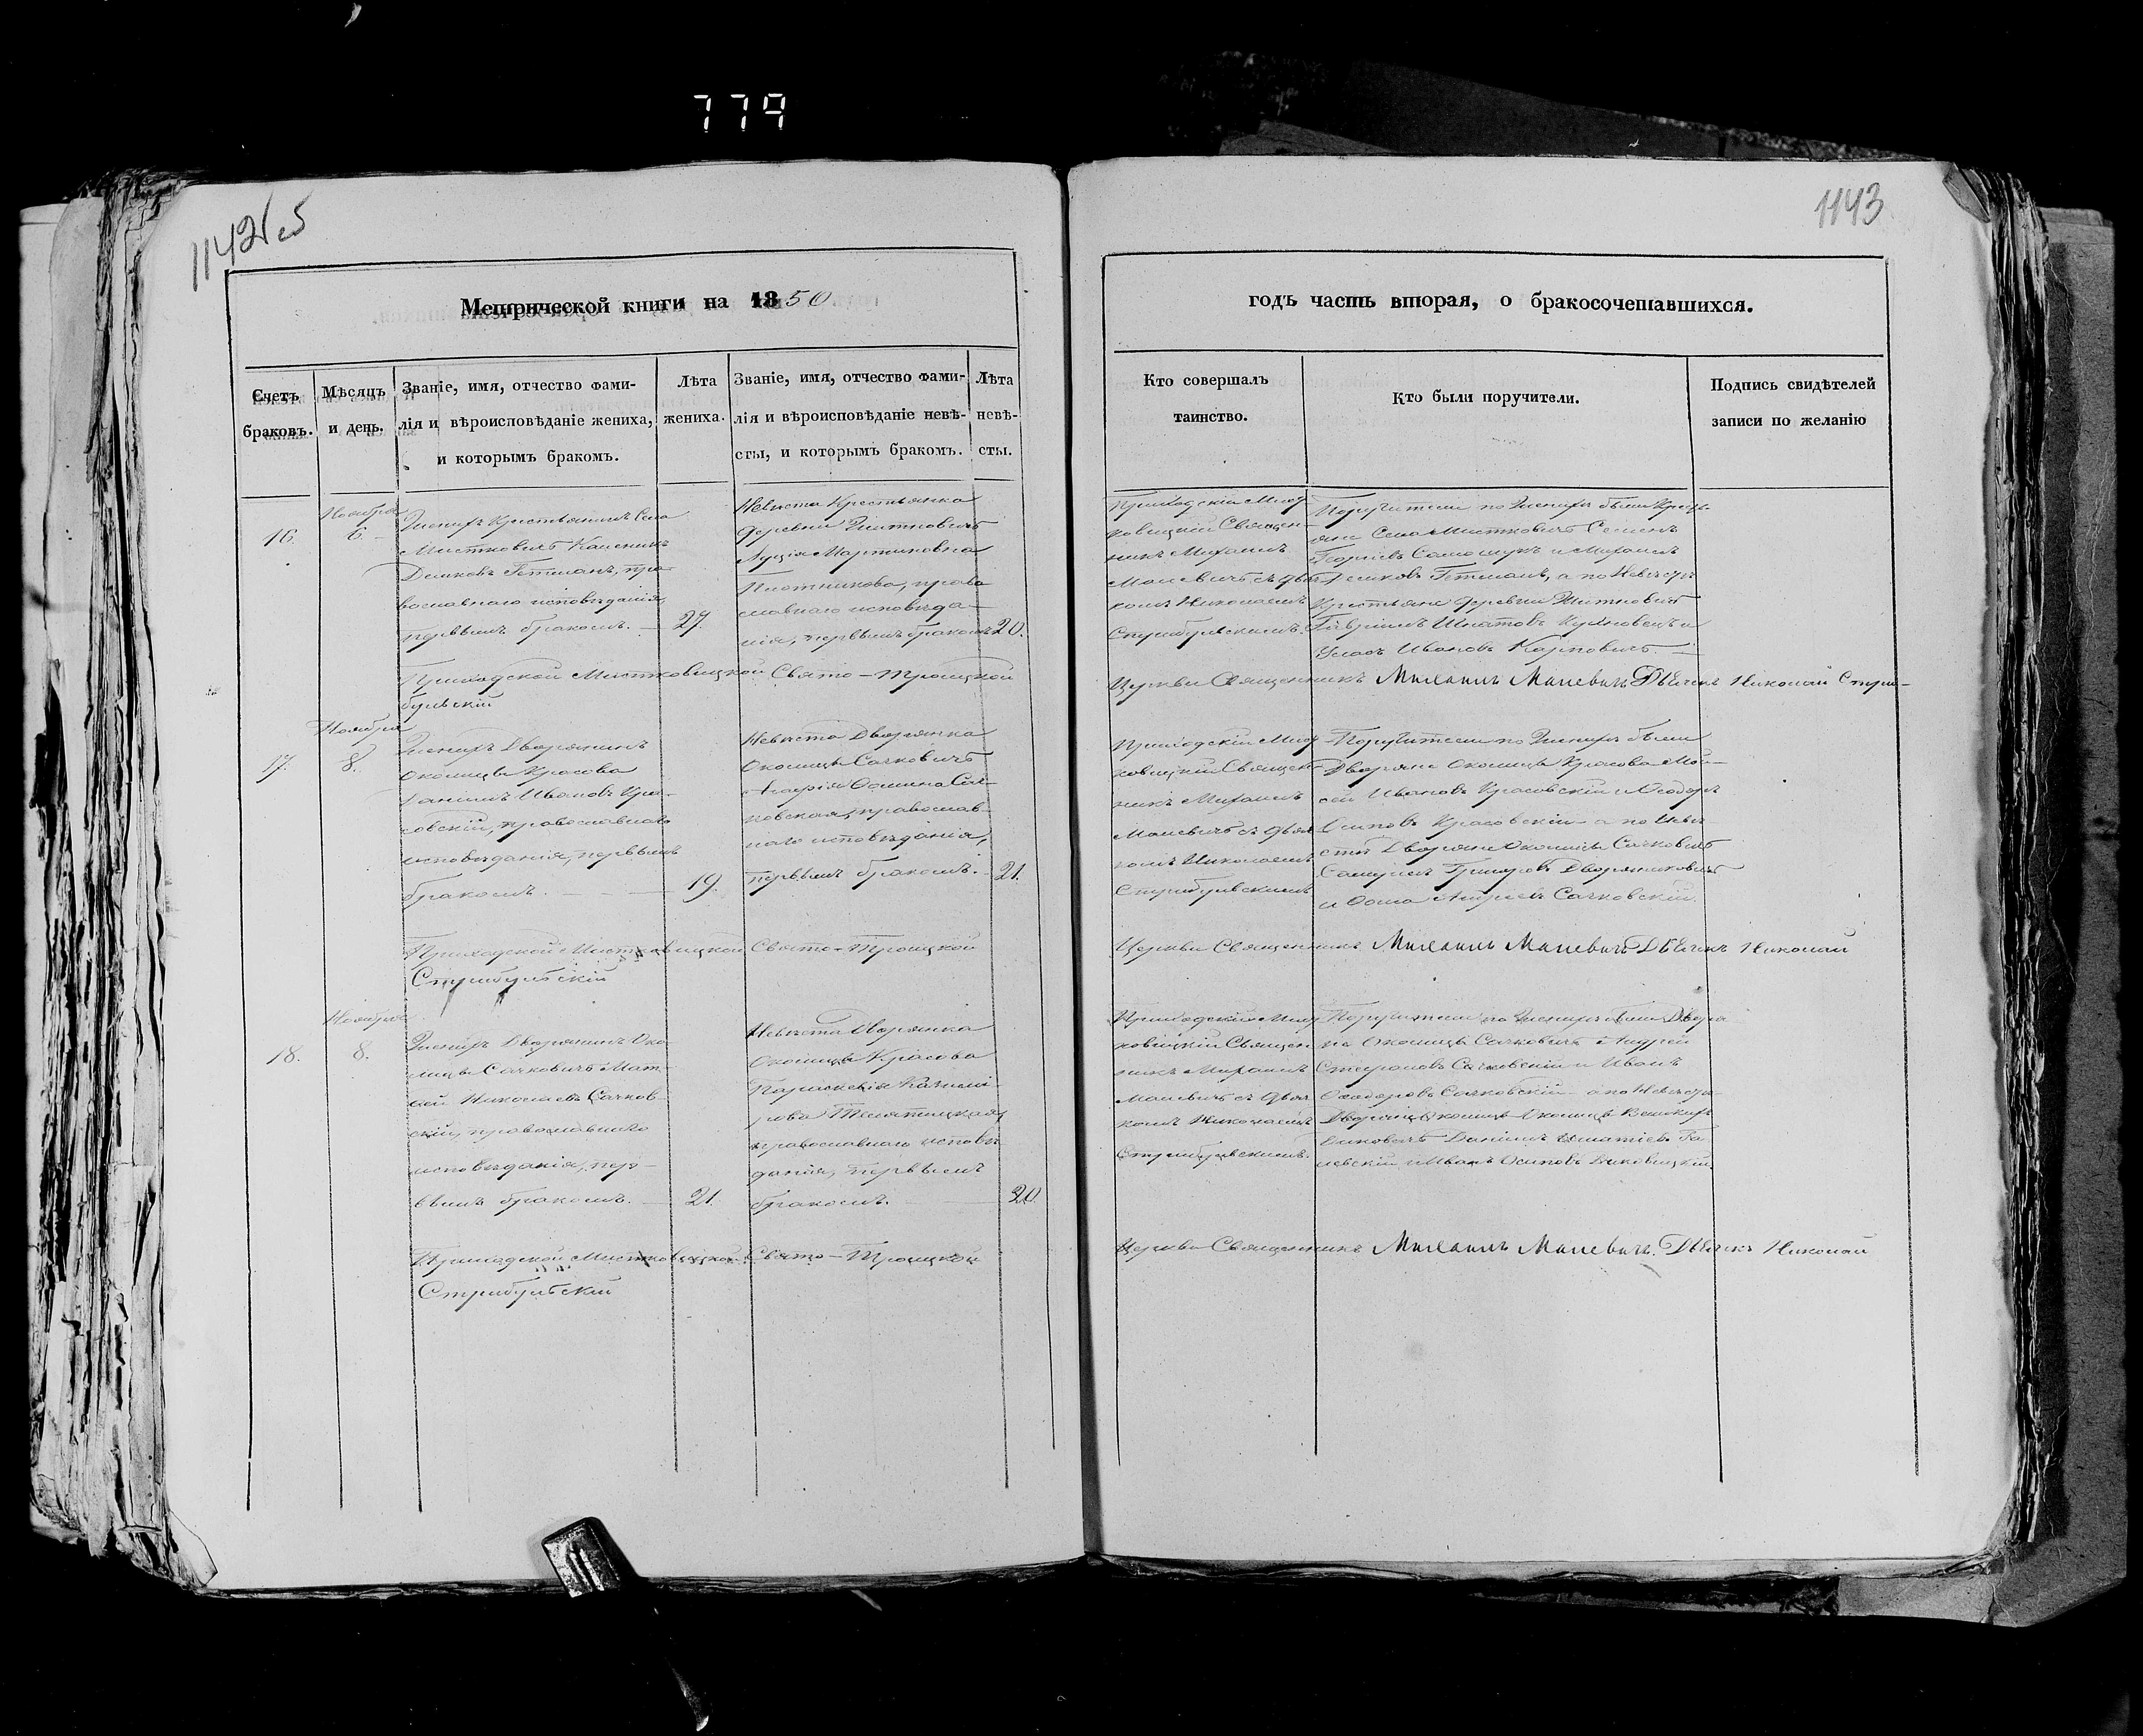 779
1142 об
1143
Метрической книги на 1850
годъ часть вторая, о бракосочетавшихся.
Счетъ браковъ.
Мѣсяцъ и день.
Званіе, имя, отчество фами-
лія и вѣроисповѣданіе жениха,
и которымъ бракомъ.
Лѣта
жениха.
Званіе, имя, отчество фами-
лія и вѣроисповѣданіе невѣ-
сты, и которымъ бракомъ.
Лѣта
невѣ-
сты.
Кто совершалъ
таинство.
Кто были поручители.
Подпись свидѣтелей
записи по желанію
16.
Ноября
6.
Женихъ Крестьянинъ Села
Мистковичъ
Демковъ Гетманъ, пра-
вославнаго исповѣданія,
первымъ бракомъ.
27.
Невѣста Крестьянка
Деревни Житковичъ
Мартиновна
Плотникова, право
славнаго исповѣда-
нія, первымъ бракомъ
20.
Приходскій Мист
ковицкій Священ-
никъ Михаилъ
Малевичъ съ дья
комъ Николаемъ
Стрибульскимъ.
Поручители по Женихѣ были Кресть
яне Села Мистковичъ Семенъ
Георгіевъ и Михаилъ
Демковъ Гетманъ, а по Невѣстѣ
Крестьяне Деревни Житковичъ
Гавріилъ Игнатовъ
Иванъ Карповичъ.
Приходской Мистковицкой Свято-Троицкой
Церкви Священникъ Михаилъ Малевичъ Дьячекъ Николай Стри-
бульскій
17.
Ноября
8.
Женихъ Дворянинъ
Околицы Красова
Даніилъ Ивановъ Кра-
совскій, православнаго
исповѣданія, первымъ
бракомъ.
19.
Невѣста Дворянка
Околицы Сачковичъ
Агафія Осипова Сач-
ковская, православ-
наго исповѣданія,
первымъ бракомъ.
21.
Приходскій Мист
ковицкій Священ
никъ Михаилъ
Малевичъ съ дья
комъ Николаемъ
Стрибульскимъ
Поручители по Женихѣ были
Дворяне Околицы Красова Мои-
сей Ивановъ Красовскій и Ѳеодоръ
Осиповъ Красовскій а по Невѣ-
стѣ Дворяне Околицы Сачковичъ
Самуилъ Григоровъ
и Ѳома Андреевъ Сачковскій.
Приходской Мистковицкой Свято-Троицкой
Церкви Священникъ Михаилъ Малевичъ Дьячекъ Николай
Стрибульскій
18.
Ноября
8.
Женихъ Дворянинъ Око
лицы Сачковичъ Мат-
вей Николаевъ Сачков-
скій, православнаго
исповѣданія, пер-
вымъ бракомъ.
21.
Невѣста Дворянка
Околицы Красова
Параскевія Казимі-
рова
православнаго исповѣ
данія, первымъ
бракомъ.
20.
Приходскій Мист
ковицкій Священ
никъ Михаилъ
Малевичъ съ дья
комъ Николаемъ
Стрибульскимъ.
Поручители по Женихѣ были Дворя
не Околицы Сачковичъ Андрей
Стефановъ Сачковскій и Иванъ
Ѳеодоровъ Сачковскій а по Невѣстѣ
Дворяне Околицы Великихъ
Даніилъ Игнатіевъ Га
левскій и Иванъ Осиповъ
Приходской Мистковицкой Свято-Троицкой
Церкви Священникъ Михаилъ Малевичъ. Дьячекъ Николай
Стрибульскій